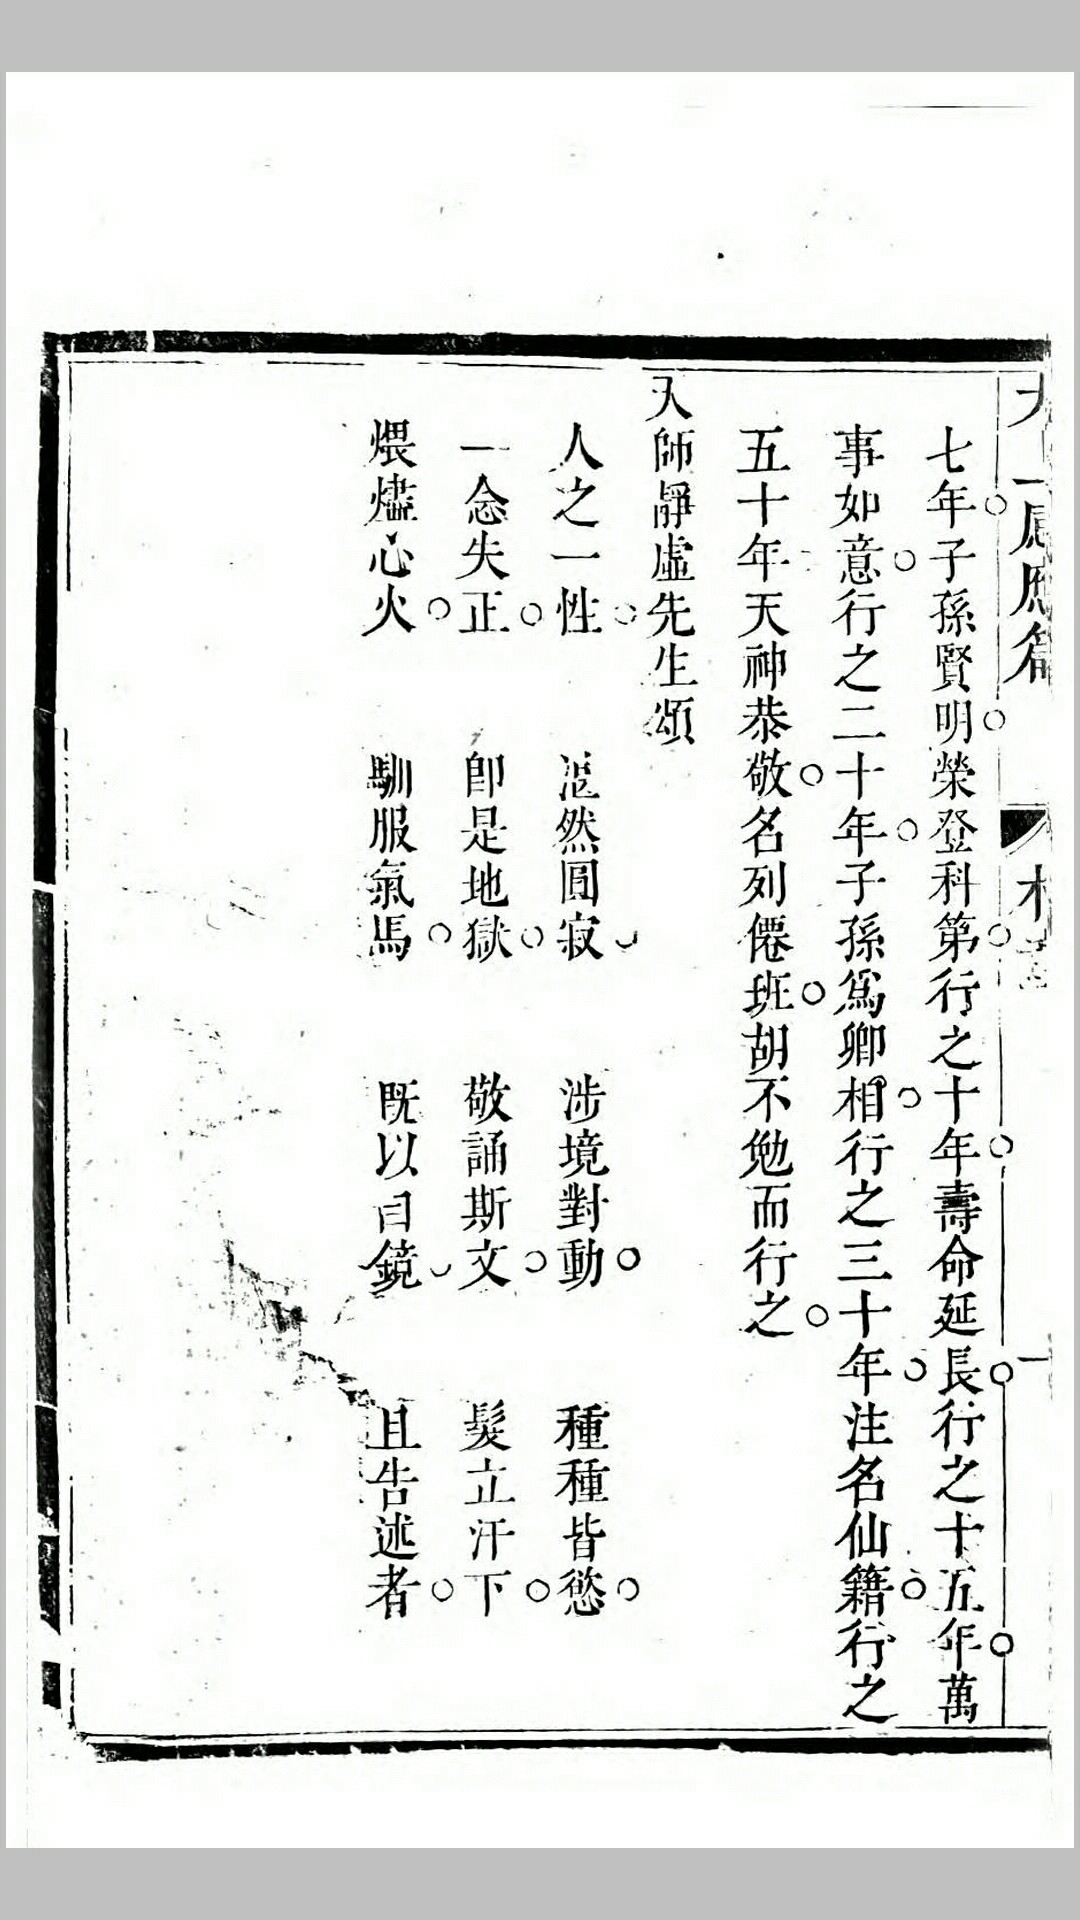 感應篇
七年子孫賢明榮登科第行之十年壽命延長行之十五年萬
事如意行之二十年子孫爲卿相行之三十年注名仙籍行之
五十年天神恭敬名列僊班胡不勉而行之
天師靜虛先生頌
人之一性 湛然圓寂 涉境對動 種種皆慾
一念失正 卽是地獄 敬誦斯文 髮立汗下
煨燼心火 馴服氣馬 既以自鏡 且告述者